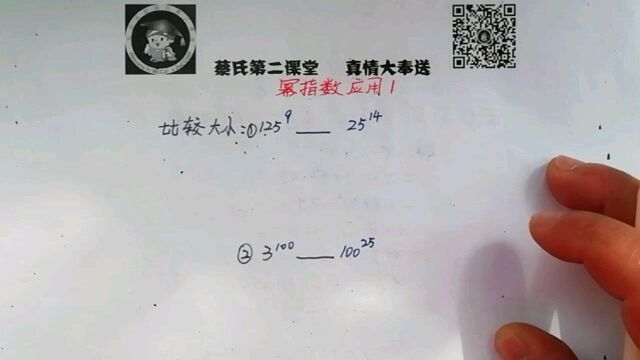 蔡氏第二课堂 真情大奉送
幂指数应用1
比较大小:①125⁹ ___ 25¹⁴
② 3¹⁰⁰ ___ 100²⁵